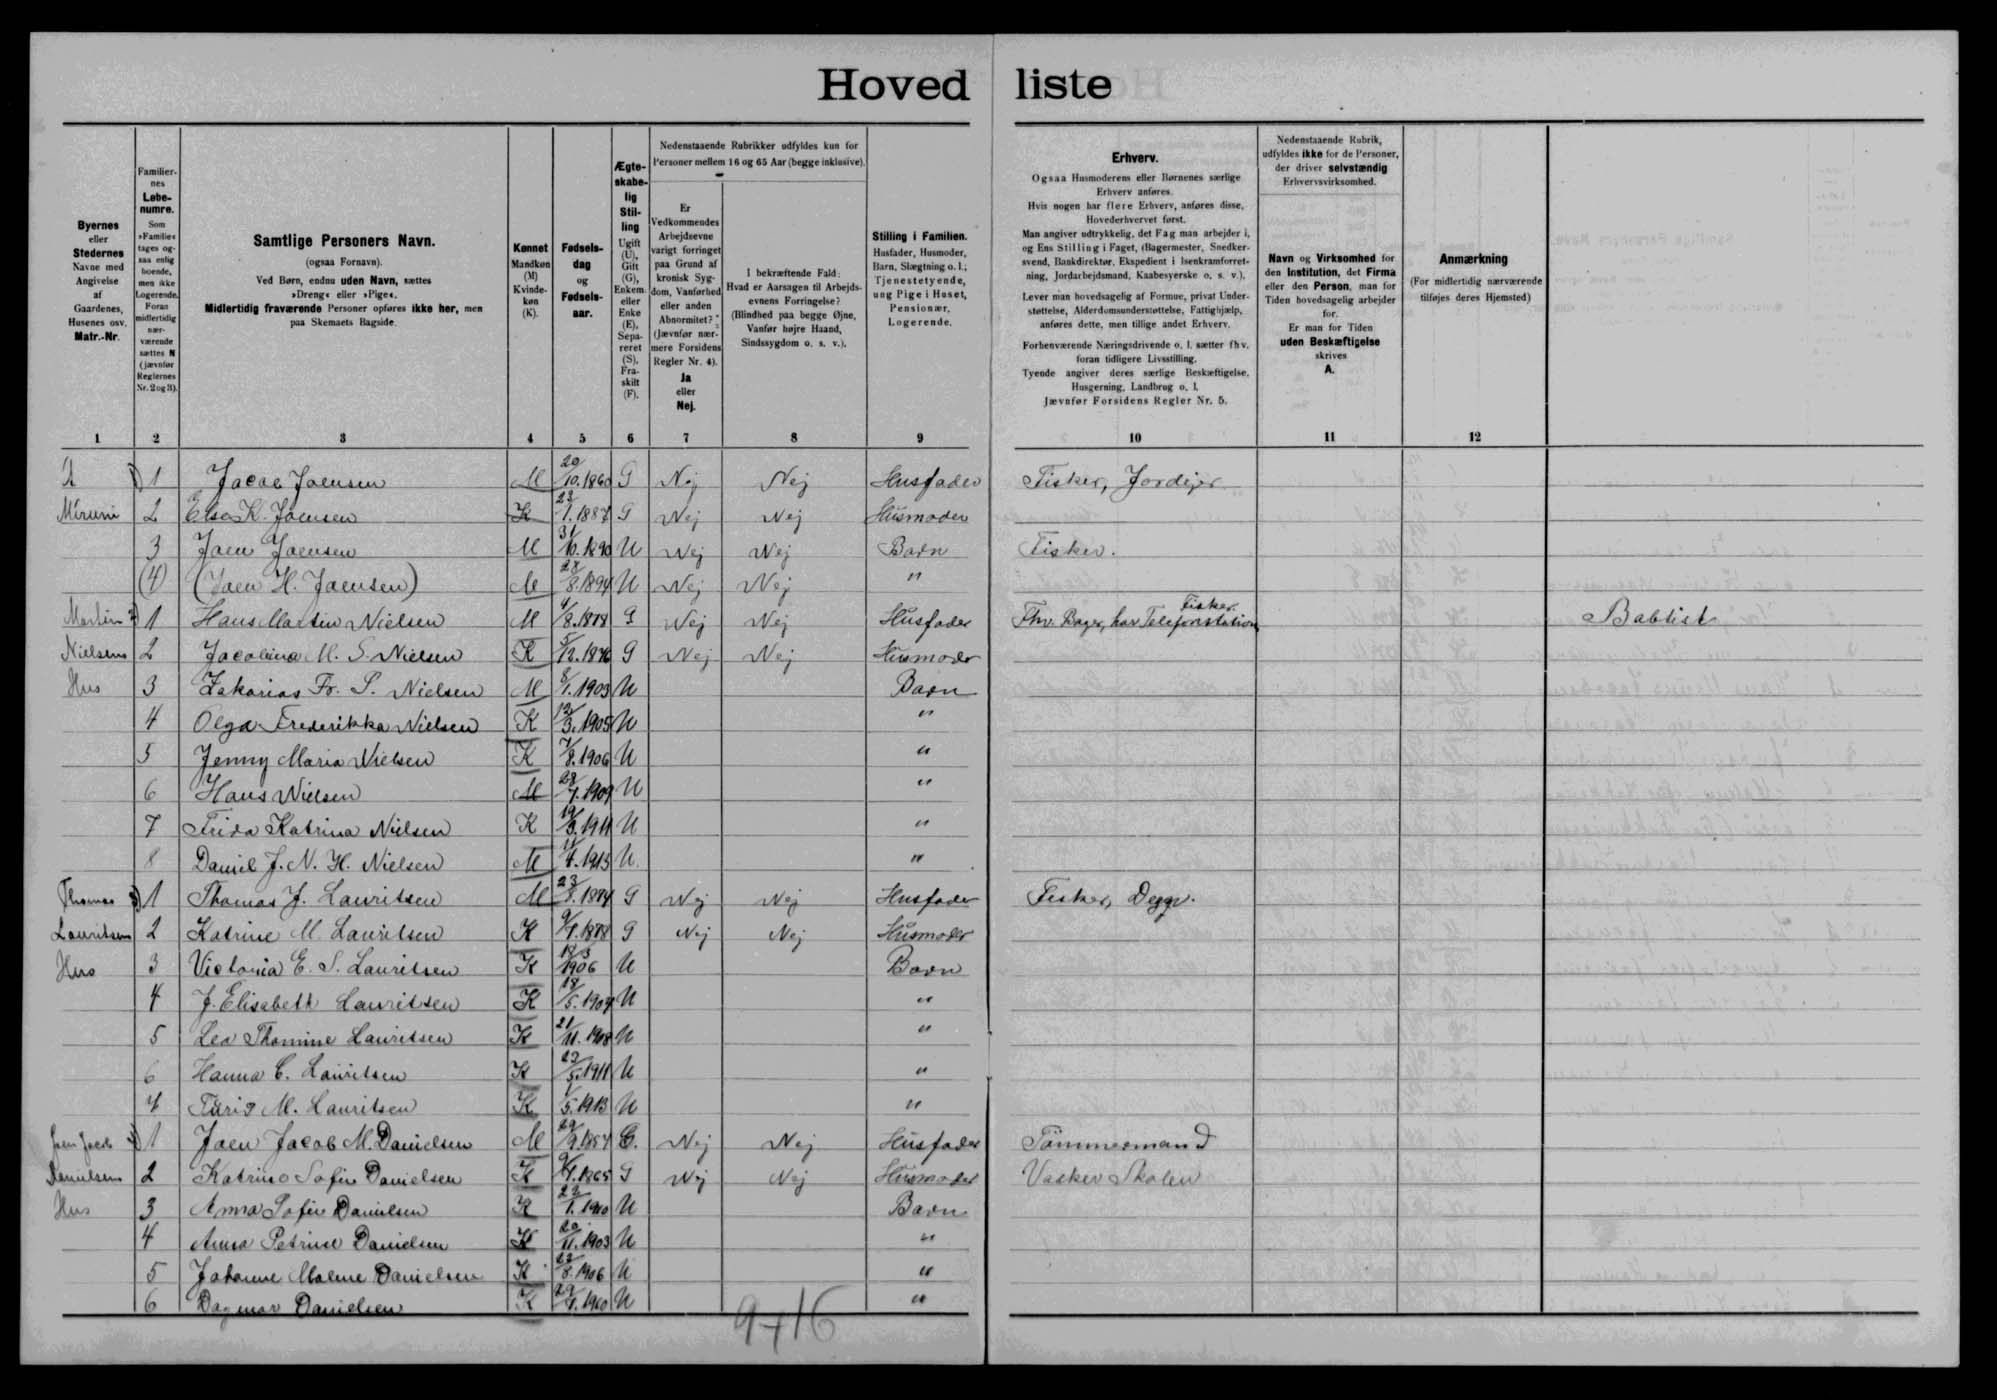 Hoved liste
Nedenstaaende Rubrikker udfyldes kun for
Personer mellem 16 og 65 Aar (begge inklusive).
Byernes
eller
Stedernes
Navne med
Angivelse
af
Gaardenes,
Husenes osv.
Matr.-Nr.
Familier-
nes
Løbe-
numre.
Som
»Familie«
tages og-
saa enlig
boende,
men ikke
Logerende.
Foran
midlertidig
nær-
værende
sættes N
(jævnfør
Reglernes
Nr. 2 og 3).
Samtlige Personers Navn.
(ogsaa Fornavn).
Ved Børn, endnu uden Navn, sættes
»Dreng« eller »Pige«.
Midlertidig fraværende Personer opføres ikke her, men
paa Skemaets Bagside.
Kønnet
Mandkøn
(M)
Kvinde-
køn
(K).
Fødsels-
dag
og
Fødsels-
aar.
Ægte-
skabe-
lig
Stil-
ling
Ugift
(U),
Gift
(G),
Enkem.
eller
Enke
(E),
Sepa-
reret
(S),
Fra-
skilt
(F).
Er
Vedkommendes
Arbejdsevne
varigt forringet
paa Grund af
kronisk Syg-
dom, Vanførhed
eller anden
Abnormitet?
(Jævnfør nær-
mere Forsidens
Regler Nr. 4).
Ja
eller
Nej.
I bekræftende Fald:
Hvad er Aarsagen til Arbejds-
evnens Forringelse?
(Blindhed paa begge Øjne,
Vanfør højre Haand,
Sindssygdom o. s. v.).
Stilling i Familien.
Husfader, Husmoder,
Barn, Slægtning o. l.;
Tjenestetyende,
ung Pige i Huset,
Pensionær,
Logerende.
Erhverv.
Ogsaa Husmoderens eller Børnenes særlige
Erhverv anføres.
Hvis nogen har flere Erhverv, anføres disse,
Hovederhvervet først.
Man angiver udtrykkelig, det Fag man arbejder i,
og Ens Stilling i Faget, (Bagermester, Snedker-
svend, Bankdirektør, Ekspedient i Isenkramforret-
ning, Jordarbejdsmand, Kaabesyerske o. s. v.).
Lever man hovedsagelig af Formue, privat Under-
støttelse, Alderdomsunderstøttelse, Fattighjælp,
anføres dette, men tillige andet Erhverv.
Forhenværende Næringsdrivende o. l. sætter fhv.
foran tidligere Livsstilling.
Tyende angiver deres særlige Beskæftigelse,
Husgerning, Landbrug o. l.
Jævnfør Forsidens Regler Nr. 5.
Nedenstaaende Rubrik,
udfyldes ikke for de Personer,
der driver selvstændig
Erhvervsvirksomhed.
Navn og Virksomhed for
den Institution, det Firma
eller den Person, man for
Tiden hovedsagelig arbejder
for.
Er man for Tiden
uden Beskæftigelse
skrives
A.
Anmærkning
(For midlertidig nærværende
tilføjes deres Hjemsted)
1 2 3 4 5 6 7 8 9 10 11 12
1) 1 Jacob Joensen M 20/10.1860 G Nej Nej Husfader Fisker, Jordejer
2 Elsa K. Joensen K 23/1. G Nej Nej Husmoder
3 Joen Joensen M 31/10.1890 U Nej Nej Barn Fisker.
(4) (Joen H. Joensen) M 28/8.1894 U Nej Nej "
Martin 2) 1 Hans Martin Nielsen M 4/8.1878 G Nej Nej Husfader Fhv. Bager, har Telefonstation, Fisker. Babtist
Nielsens 2 Jacobina M. S. Nielsen K 5/12.1876 G Nej Nej Husmoder
Hus 3 Zakarias Fr. P. Nielsen M 8/1.1903 U Barn
4 Olga Frederikka Nielsen K 12/3.1905 U "
5 Jenny Maria Nielsen K 7/8.1906 U "
6 Hans Nielsen M 28/7.1909 U "
7 Frida Katrina Nielsen K 19/3.1911 U "
8 Daniel J. N. H. Nielsen M 11/4.1913 U. "
Thomas 3) 1 Thomas J. Lauritsen M 23/8.1874 G Nej Nej Husfader Fisker,
Lauritsens 2 Katrine M. Lauritsen K 9/7.1878 G Nej Nej Husmoder
Hus 3 Victoria E. S. Lauritsen K 1906 U Barn
4 J. Elisabeth Lauritsen K 18/5.1907 U "
5 Lea Thomine Lauritsen K 21/11.1908 U "
6 Hanna C. Lauritsen K 23/5.1911 U "
7 Turid M. Lauritsen K 1/5.1913 U "
Joen Jacob 4) 1 Joen Jacob M. Danielsen M 29/9.1857 G. Nej Nej Husfader Tömmermand
Danielsens 2 Katrine Sofie Danielsen K 9/7.1865 G Nej Nej Husmoder Vasker Skolen
Hus 3 Anna Sofie Danielsen K 22/1. U Barn
4 Anna Petrine Danielsen K 20/11.1903 U "
5 Johanne Malene Danielsen K 22/8.1906 U "
6 Dagmar Danielsen K U "
9+16